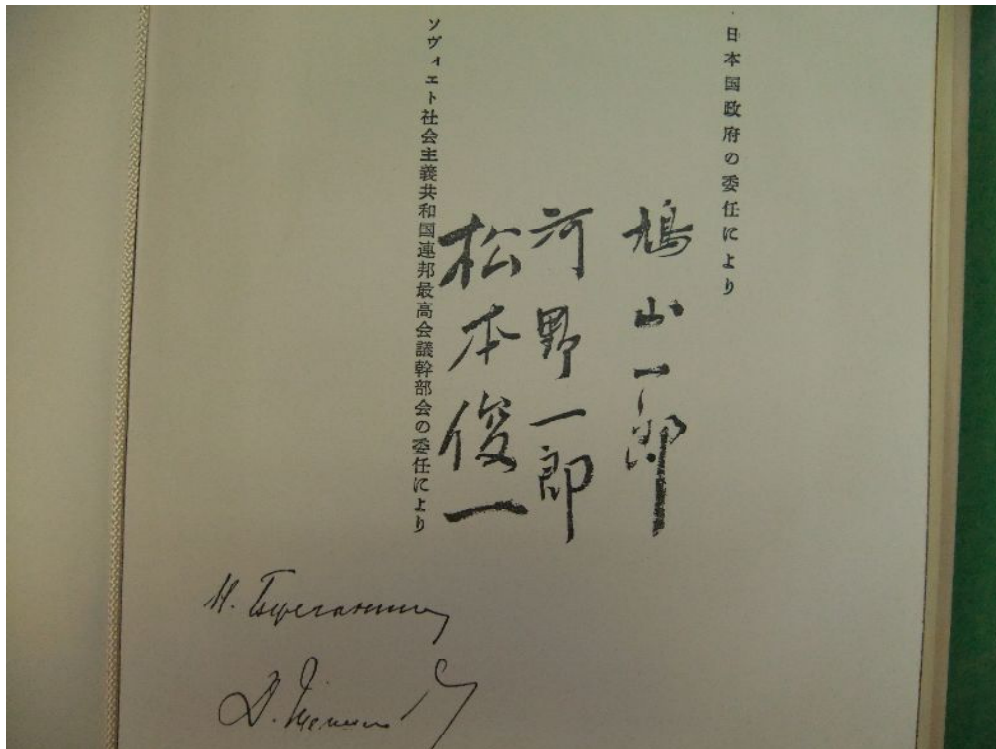 日本国政府の委任により
鳩山一郎
河野一郎
松本俊一
ソヴィエト社会主義共和国連邦最高会議幹部会の委任により
Н. Булганин
Д. Шепилов